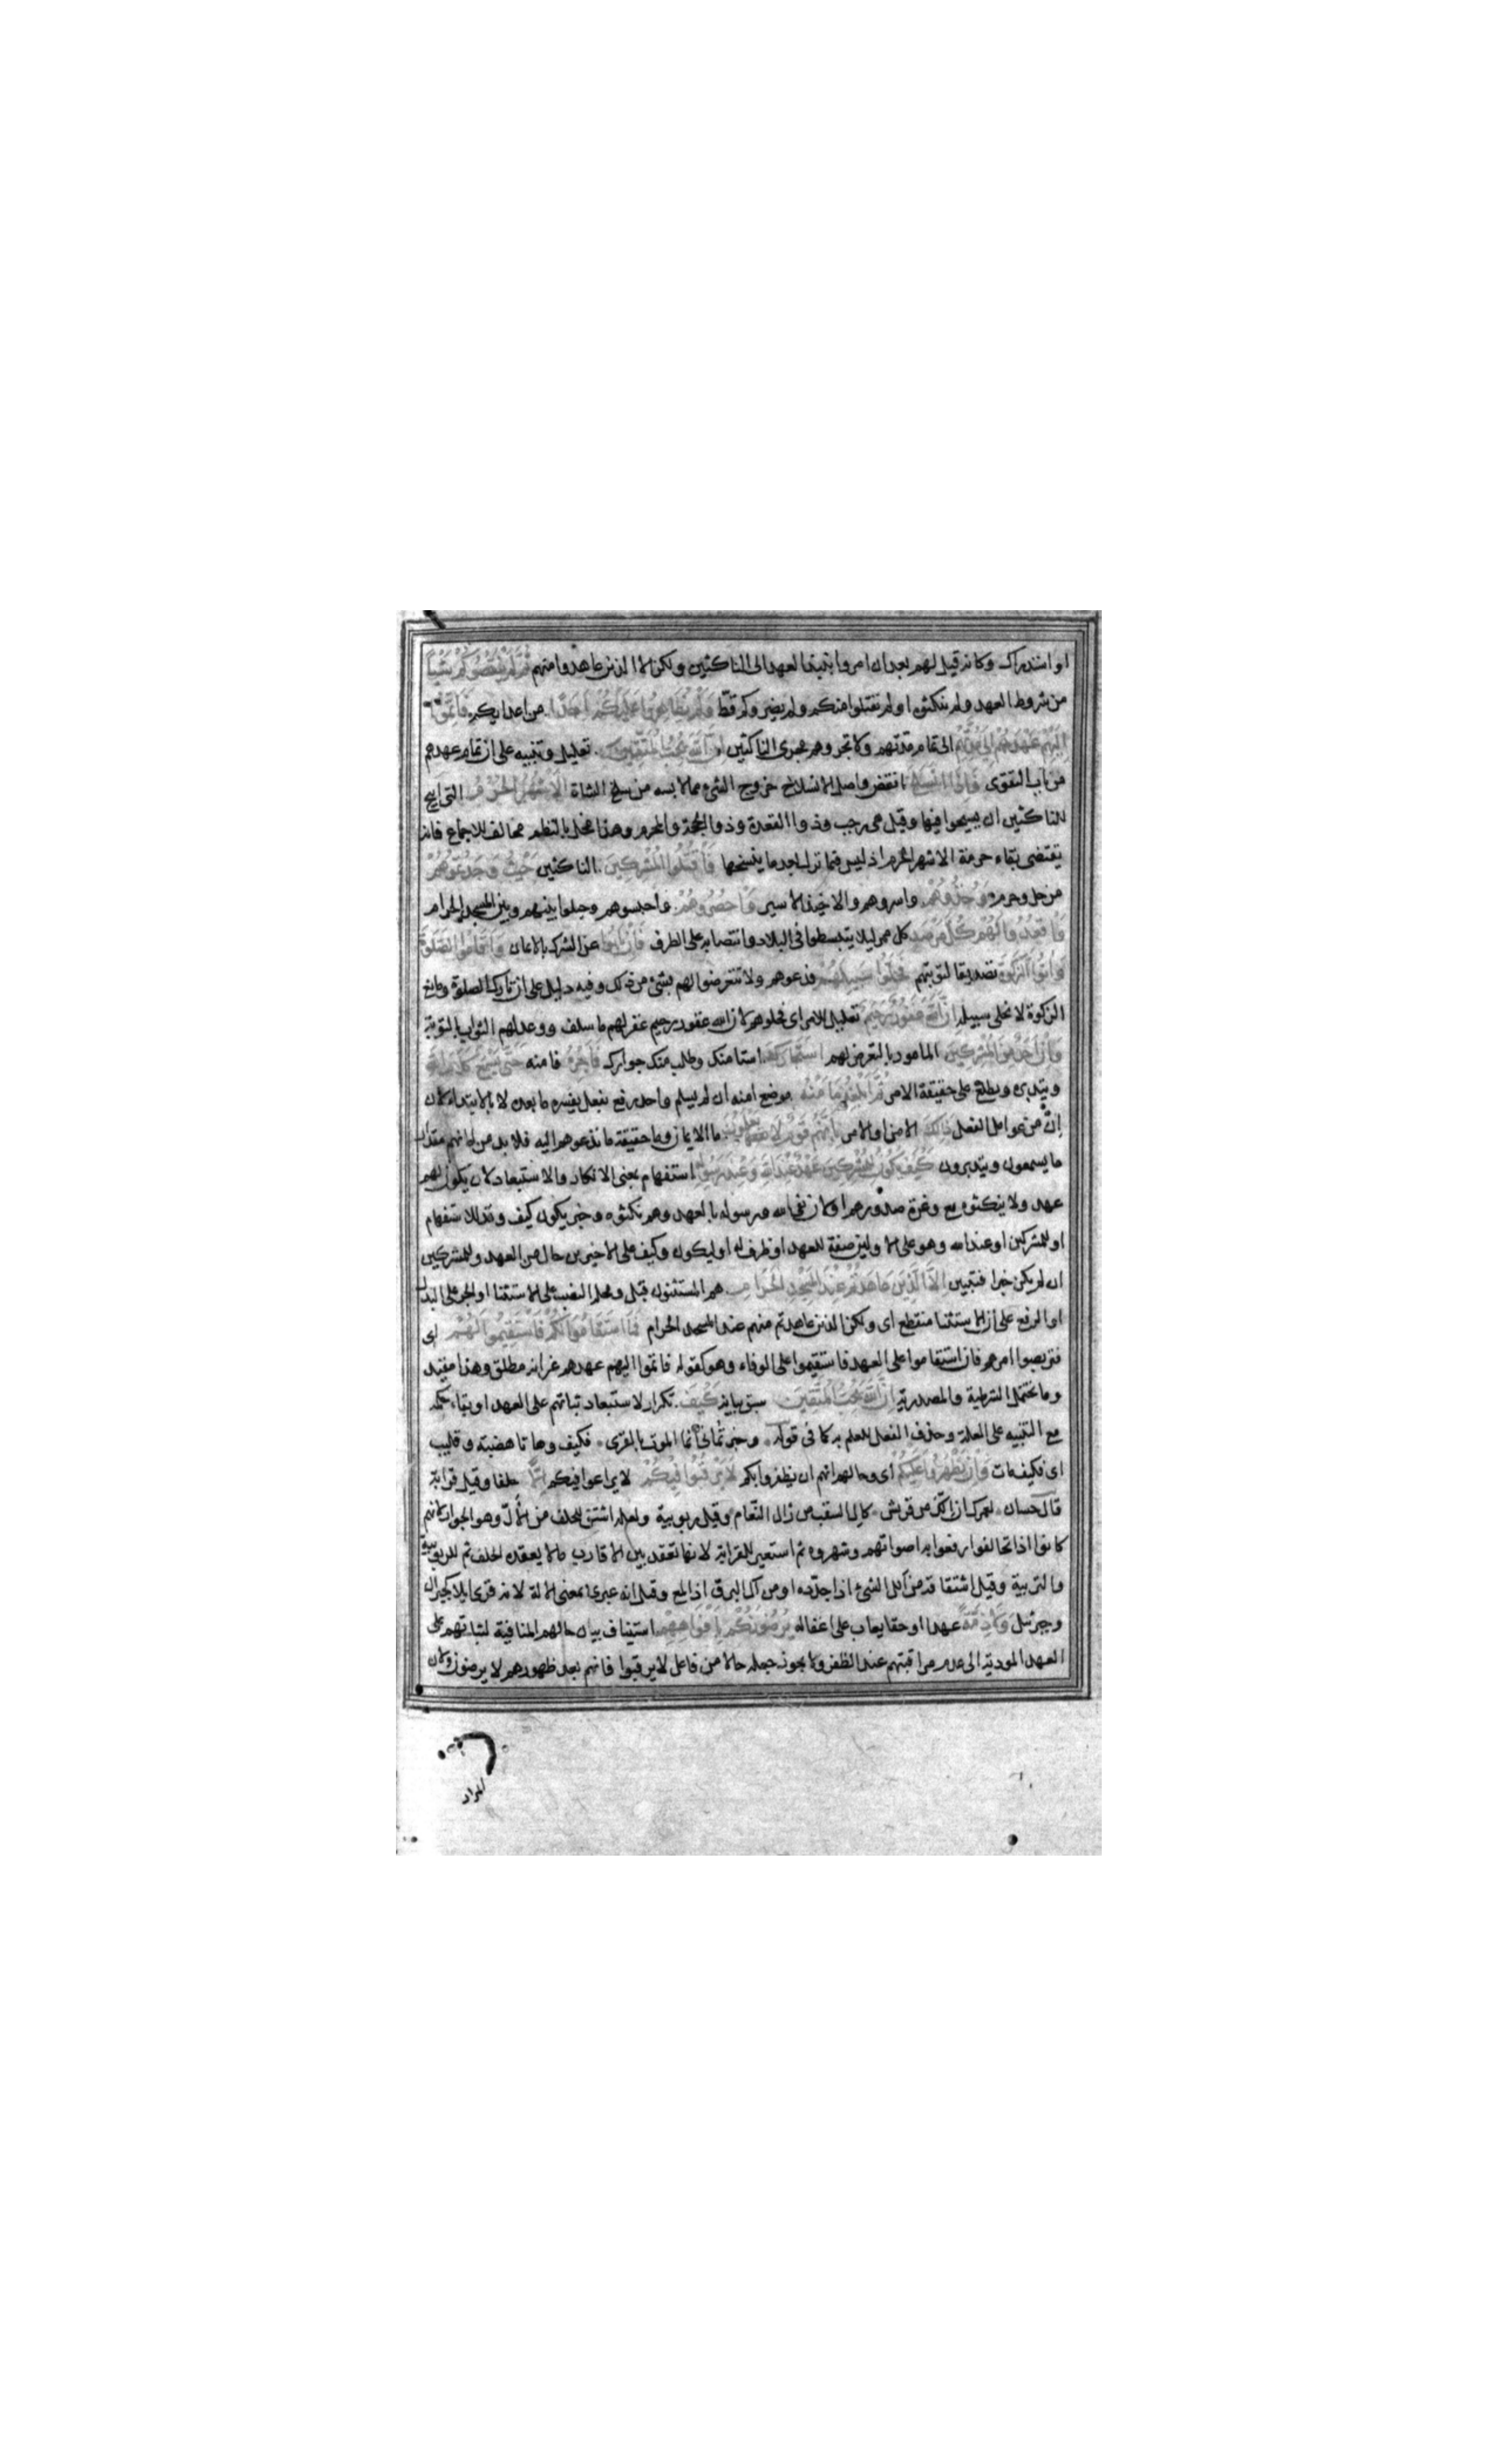 او استدراك وكانه قيل لهم بعد ان امروا بنبذ العهد الى الناكثين ولكن الا الذين عاهدوا منهم ثم لم ينقصوكم شيئا
من شروط العهد ولم ينكثوه او لم يقتلوا منكم ولم يضروكم قط ولم يظاهروا عليكم احدا من اعدايكم فاتموا
اليهم عهدهم الى مدتهم الى تمام مدتهم ولا تجروهم مجرى الناكثين ان الله يحب المتقين تعليل وتنبيه على ان تمام عهدهم
من باب التقوى فاذا انسلخ انقضى واصل الانسلاخ خروج الشئ مما لابسه من سلخ الشاة الاشهر الحرم التى ابيح
للناكثين ان يسيحوا فيها وقيل هى رجب وذو القعدة وذو الحجة والمحرم وهذا مخل بالنظم مخالف للاجماع فانه
يقتضى بقاء حرمة الاشهر الحرم اذ ليس فيما نزل بعد ما ينسخها فاقتلوا المشركين الناكثين حيث وجدتموهم
من حل وحرم وخذوهم واسروهم والاخيذ الاسير واحصروهم واحبسوهم وحيلوا بينهم وبين المسجد الحرام
واقعدوا لهم كل مرصد كل ممر ليلا يتبسطوا فى البلاد وانتصابه على الظرف فان تابوا عن الشرك بالايمان واقاموا الصلوة
واتوا الزكوة تصديقا لتوبتهم فخلوا سبيلهم فدعوهم ولا تتعرضوا لهم بشئ من ذلك وفيه دليل على ان تارك الصلوة ومانع
الزكوة لا يخلى سبيله ان الله غفور رحيم تعليل للامر اى فخلوهم لان الله غفور رحيم غفر لهم ما سلف ووعد لهم الثواب بالتوبة
وان احد من المشركين المامور بالتعرض لهم استجارك استامنك وطلب منك جوارك فاجره فامنه حتى يسمع كلام الله
ويتدبره ويطلع على حقيقة الامر ثم ابلغه مامنه موضع امنه ان لم يسلم واحد رفع بفعل يفسره ما بعده لا بالابتداء لان
ان من عوامل الفعل ذلك الامن او الامر بانهم قوم لا يعلمون ما الايمان وما حقيقة ما تدعوهم اليه فلا بد من امانهم مقدار
ما يسمعون ويتدبرون كيف يكون للمشركين عهد عند الله وعند رسوله استفهام بمعنى الانكار والاستبعاد لان يكون لهم
عهد ولا ينكثوه مع وغرة صدورهم او لان يفى الله ورسوله بالعهد وهم نكثوه وخبر يكون كيف وقدم للاستفهام
او للمشركين او عند الله وهو على الاولين صفة للعهد او ظرف له او ليكون وكيف على الاخيرين حال من العهد وللمشركين
ان لم يكن خبرا فتبيين الا الذين عاهدتم عند المسجد الحرام هم المستثنون قبل ومحله النصب على الاستثنا او الجر على البدل
او الرفع على ان الاستثنا منقطع اى ولكن الذين عاهدتم منهم عند المسجد الحرام فما استقاموا لكم فاستقيموا لهم اى
فتربصوا امرهم فان استقاموا على العهد فاستقيموا على الوفاء وهو كقوله فاتموا اليهم عهدهم غير انه مطلق وهذا مقيد
وما تحتمل الشرطية والمصدرية ان الله يحب المتقين سبق بيانه كيف تكرار لاستبعاد ثباتهم على العهد او بقاء حكمه
مع التنبيه على العلة وحذف الفعل للعلم به كما فى قوله وخبرتمانى انما الموت بالقرى فكيف وهاتا هضبة وقليب
اى فكيف مات وان يظهروا عليكم اى وحالهم انهم ان يظفروا بكم لا يرقبوا فيكم لا يراعوا فيكم الا حلفا وقيل قرابة
قال حسان لعمرك ان الك من قريش كال السقب من رال النعام وقيل ربوبية ولعله اشتق للحلف من الال وهو الجوار لانهم
كانوا اذا تحالفوا رفعوا به اصواتهم وشهروه ثم استعير للقرابة لانها تعقد بين الاقارب مالا يعقده الحلف ثم للربوبية
والتربية وقيل اشتقاقه من الل الشئ اذا حدده او من ال البرق اذا لمع وقيل انه عبرى بمعنى الاله لانه قرئ ايلا كجبرال
وجبرئل ولا ذمة عهدا او حقا يعاب على اغفاله يرضونكم بافواههم استيناف بيان حالهم المنافية لثباتهم على
العهد المودية الى عدم مراقبتهم عند الظفر ولا يجوز جعله حالا من فاعل لا يرقبوا فانهم بعد ظهورهم لا يرضون ولان
المراد